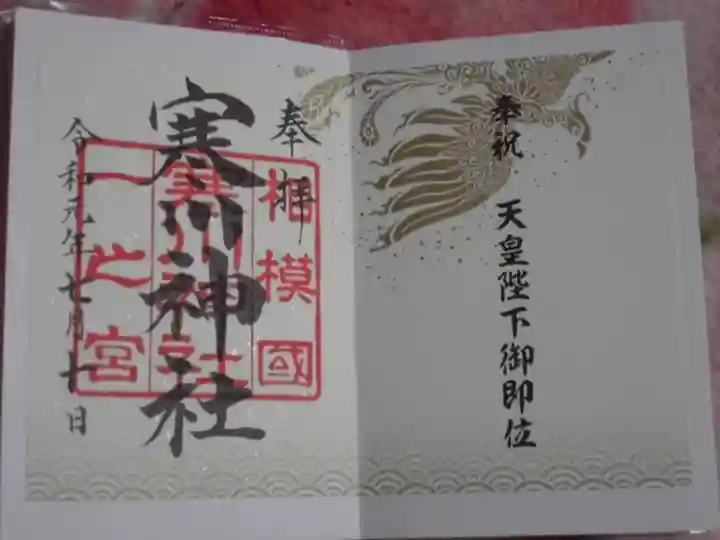 奉祝 天皇陛下御即位
奉拝
寒川神社
令和元年七月十日
相模國
寒川神社
一之宮